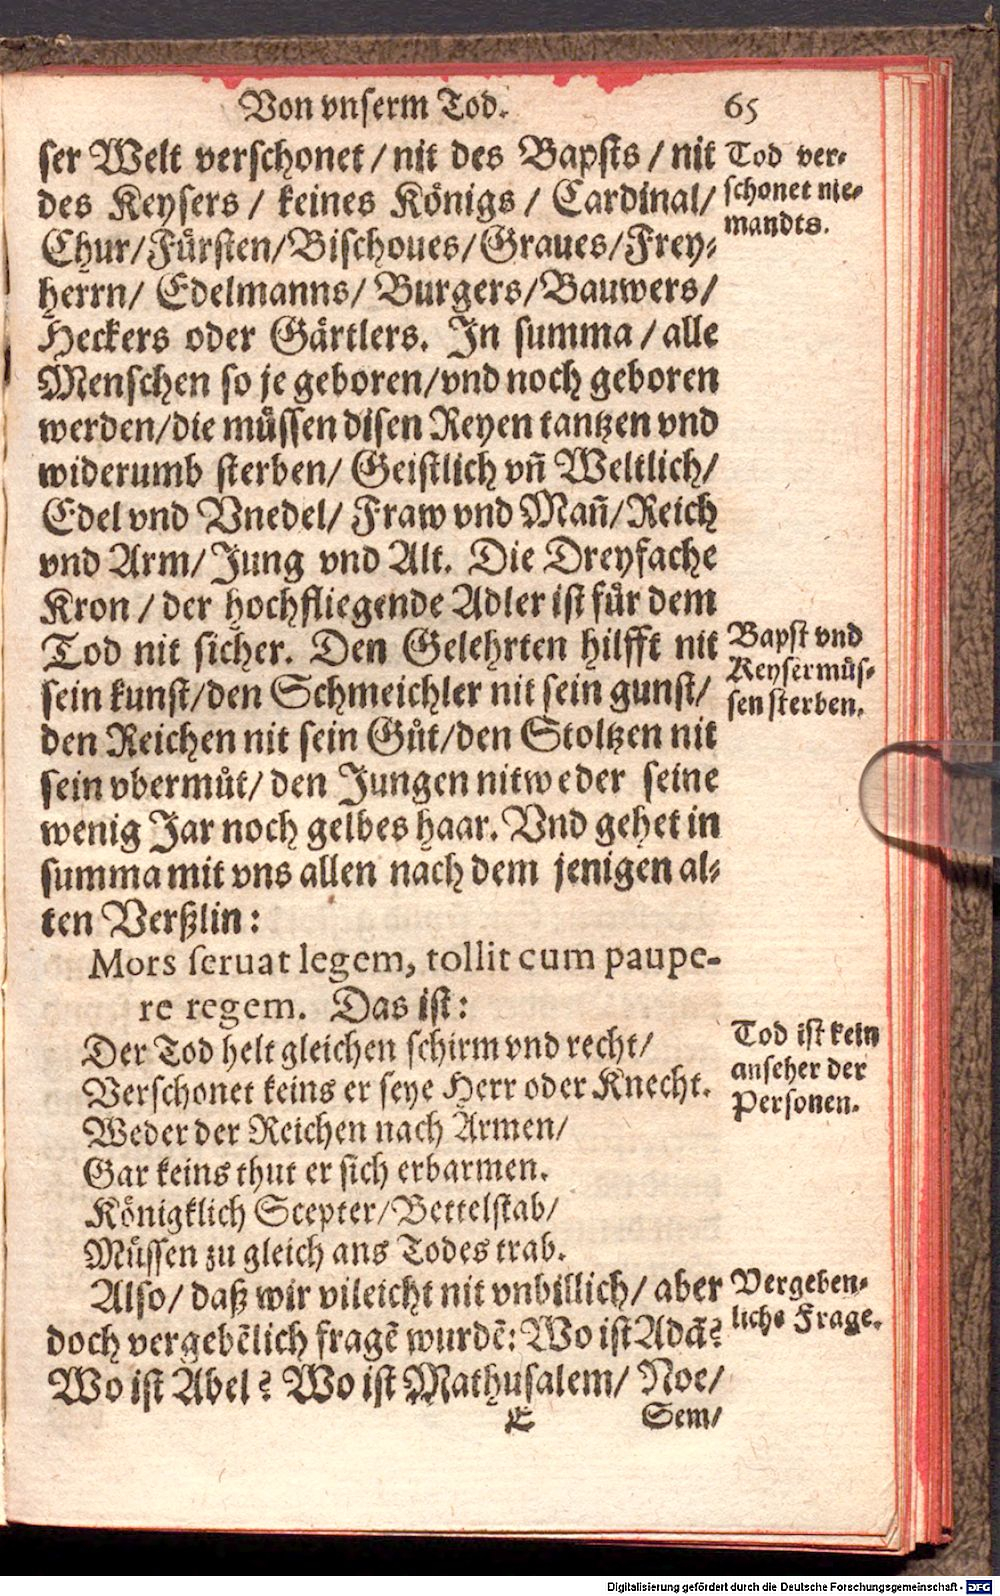 Von vnserm Tod. 65
ser Welt verschonet / nit des Bapsts / nit
des Keysers / keines Königs / Cardinal/
Chur/Fürsten/Bischoues/Graues/Frey-
herrn/ Edelmanns/ Burgers/Bauwers/
Heckers oder Gärtlers. In summa / alle
Menschen so je geboren/vnd noch geboren
werden/die müssen disen Reyen tantzen vnd
widerumb sterben/ Geistlich vñ Weltlich/
Edel vnd Vnedel/ Fraw vnd Mañ/Reich
vnd Arm/Jung vnd Alt. Die Dreyfache
Kron / der hochfliegende Adler ist für dem
Tod nit sicher. Den Gelehrten hilfft nit
sein kunst/den Schmeichler nit sein gunst/
den Reichen nit sein Gůt/den Stoltzen nit
sein vbermůt/ den Jungen nitweder seine
wenig Jar noch gelbes haar. Vnd gehet in
summa mit vns allen nach dem jenigen al-
ten Verßlin:
Mors seruat legem, tollit cum paupe-
re regem. Das ist:
Der Tod helt gleichen schirm vnd recht/
Verschonet keins er seye Herr oder Knecht.
Weder der Reichen nach Armen/
Gar keins thut er sich erbarmen.
Königklich Scepter/Bettelstab/
Müssen zu gleich ans Todes trab.
Also/ daß wir vileicht nit vnbillich/ aber
doch vergebẽlich fragẽ wurdẽ: Wo ist Adã?
Wo ist Abel? Wo ist Mathusalem/ Noe/
E Sem/
Tod ver-
schonet nie-
mandts.
Bapst vnd
Keyser müs-
sen sterben.
Tod ist kein
anseher der
Personen.
Vergeben-
liche Frage.
Digitalisierung gefördert durch die Deutsche Forschungsgemeinschaft - DFG